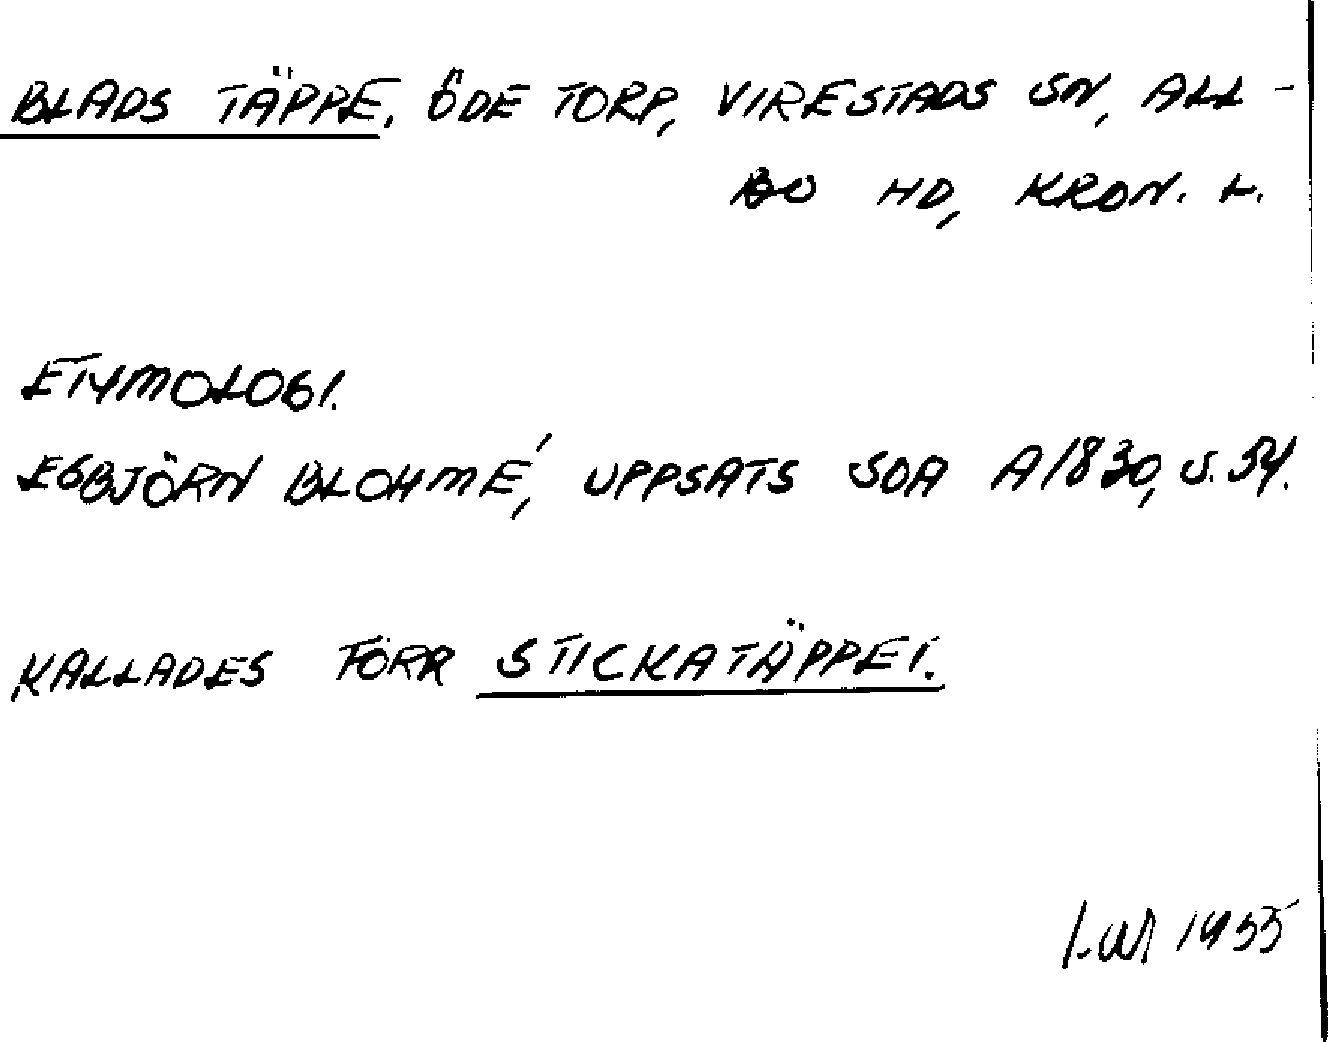 BLADS TÄPPE, ÖDE TORP, VIRESTADS SN, ALL-
BO HD, KRON. L.
ETYMOLOGI.
EGBJÖRN BLOHMÉ, UPPSATS SOA A1830, S. 34.
KALLADES FÖRR STICKATÄPPET.
1955